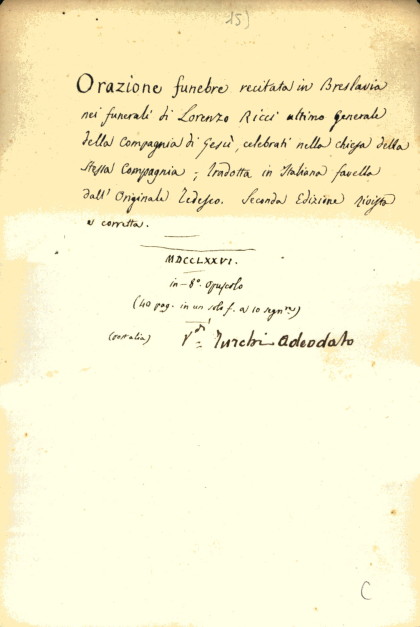 15)
Orazione funebre recitata in Breslavia
nei funerali di Lorenzo Ricci ultimo generale
della Compagnia di Gesù, celebrati nella chiesa della
stessa Compagnia; tradotta in Italiana favella
dall' Originale Tedesco. Seconda Edizione rivista
e corretta.
MDCCLXXVI.
in-8º. opuscolo
(40 pag. in un solo f. a 10 segn.re)
Turchi Adeodato
C